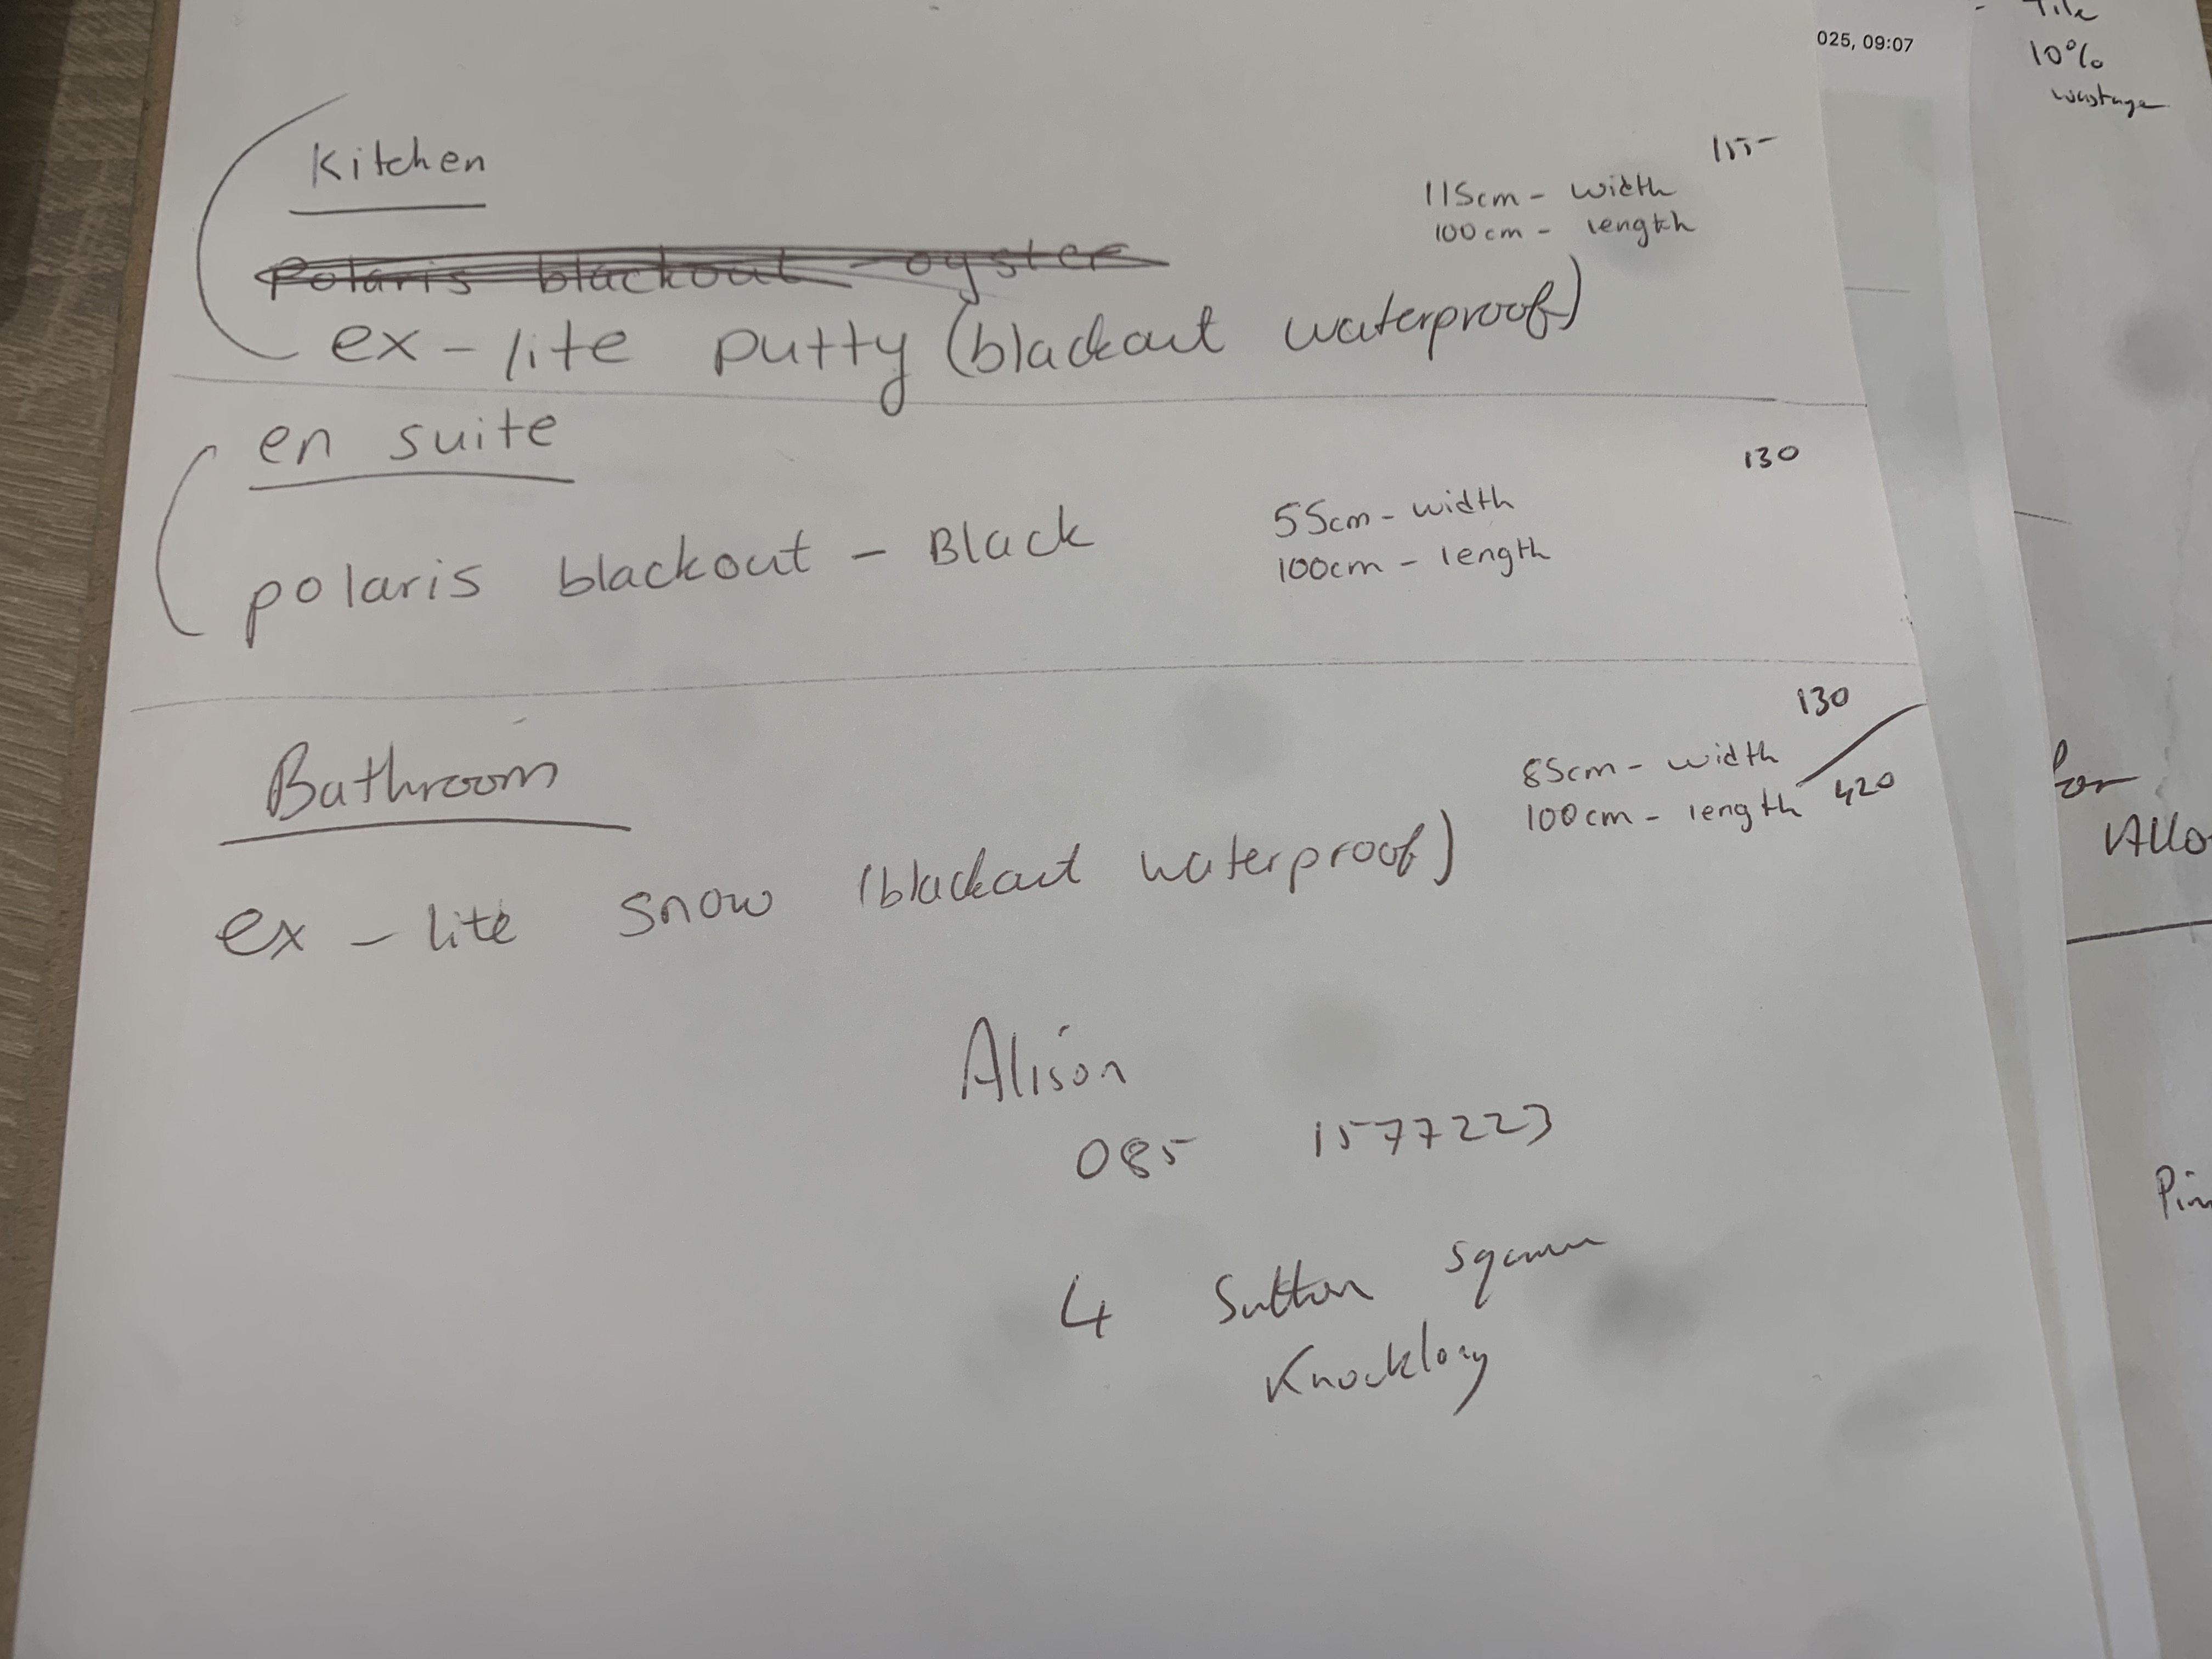 Tile
10%
wastage
025, 09:07
Kitchen
155-
115cm - width
100cm - length
Polaris blackout - oyster
ex-lite putty (blackout waterproof)
en suite
130
55cm - width
100cm - length
polaris blackout - Black
130
Bathroom
85cm - width
100cm - length
420
ex-lite snow (blackout waterproof)
for
Allo
Alison
085 1577223
Pin
4 Sutton Square